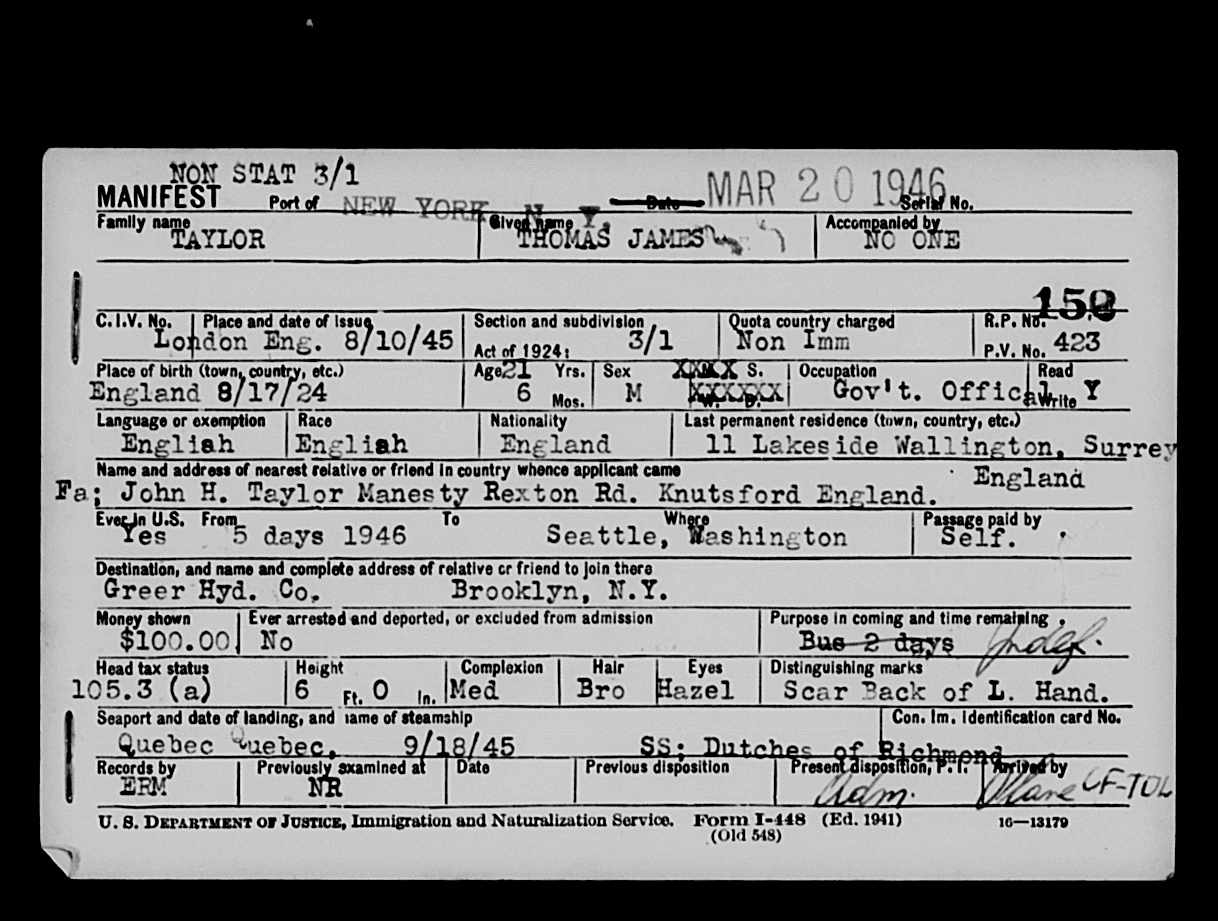 NON STAT 3/1
MANIFEST Port of NEW YORK, N. Y. Date MAR 20 1946 Serial No.
Family name Given name Accompanied by
TAYLOR THOMAS JAMES NO ONE
150
C.I.V. No. Place and date of issue Section and subdivision Quota country charged R.P. No.
London Eng. 8/10/45 Act of 1924: 3/1 Non Imm P.V. No. 423
Place of birth (town, country, etc.) Age 21 Yrs. Sex XXXX S. Occupation Read
England 8/17/24 6 Mos. M XXXXXX W. D. Gov't. Offical Write Y
Language or exemption Race Nationality Last permanent residence (town, country, etc.)
English English England 11 Lakeside Wallington, Surrey
Name and address of nearest relative or friend in country whence applicant came England
Fa; John H. Taylor Manesty Rexton Rd. Knutsford England.
Ever in U.S. From To Where Passage paid by
Yes 5 days 1946 Seattle, Washington Self.
Destination, and name and complete address of relative or friend to join there
Greer Hyd. Co. Brooklyn, N.Y.
Money shown Ever arrested and deported, or excluded from admission Purpose in coming and time remaining
$100.00 No Bus 2 days Indef.
Head tax status Height Complexion Hair Eyes Distinguishing marks
105.3 (a) 6 Ft. 0 In. Med Bro Hazel Scar Back of L. Hand.
Seaport and date of landing, and name of steamship Con. Im. Identification card No.
Quebec Quebec. 9/18/45 SS; Dutches of Richmond
Records by Previously examined at Date Previous disposition Present disposition, P. I. Arrived by
ERM NR Adm. Plane CF-TDL
U. S. DEPARTMENT OF JUSTICE, Immigration and Naturalization Service. Form I-448 (Ed. 1941) 16—13179
(Old 548)